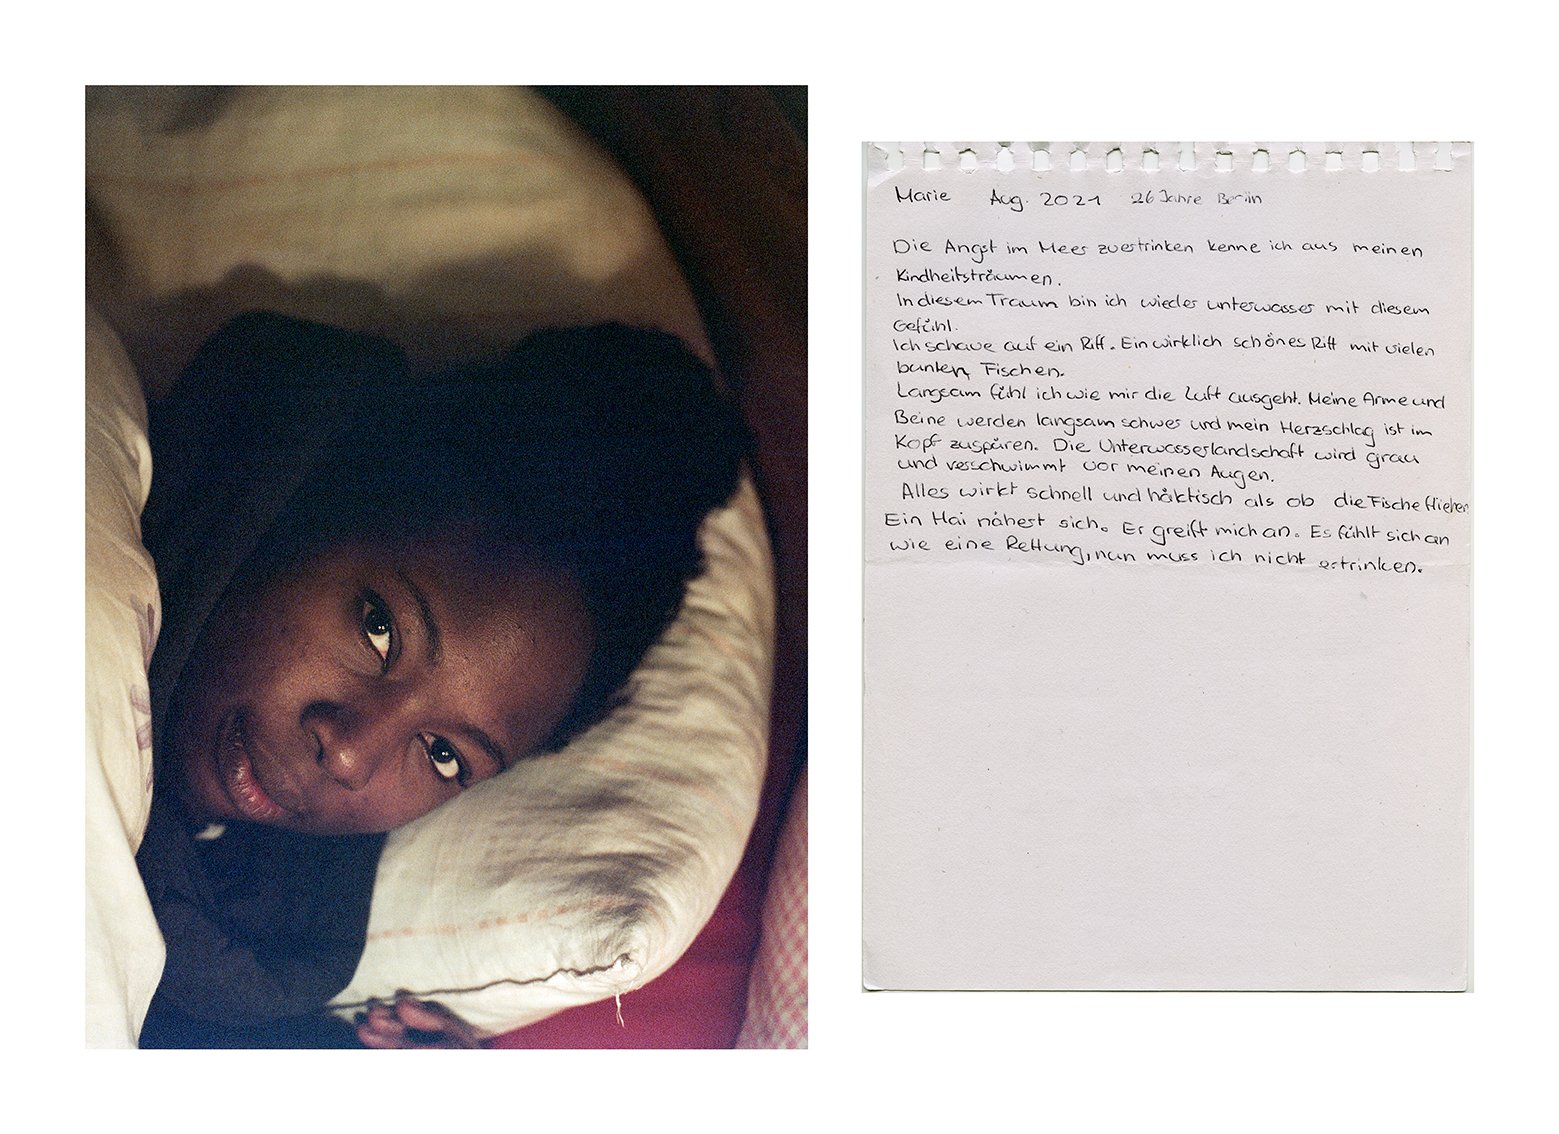 Marie Aug. 2021 26 Jahre Berlin
Die Angst im Meer zuertrinken kenne ich aus meinen
Kindheitsträumen.
In diesem Traum bin ich wieder unterwasser mit diesem
Gefühl.
Ich schaue auf ein Riff. Ein wirklich schönes Riff mit vielen
bunten Fischen.
Langsam fühl ich wie mir die Luft ausgeht. Meine Arme und
Beine werden langsam schwer und mein Herzschlag ist im
Kopf zuspüren. Die Unterwasserlandschaft wird grau
und verschwimmt vor meinen Augen.
Alles wirkt schnell und häktisch als ob die Fische fliehen
Ein Hai nähert sich. Er greift mich an. Es fühlt sich an
wie eine Rettung, nun muss ich nicht ertrinken.